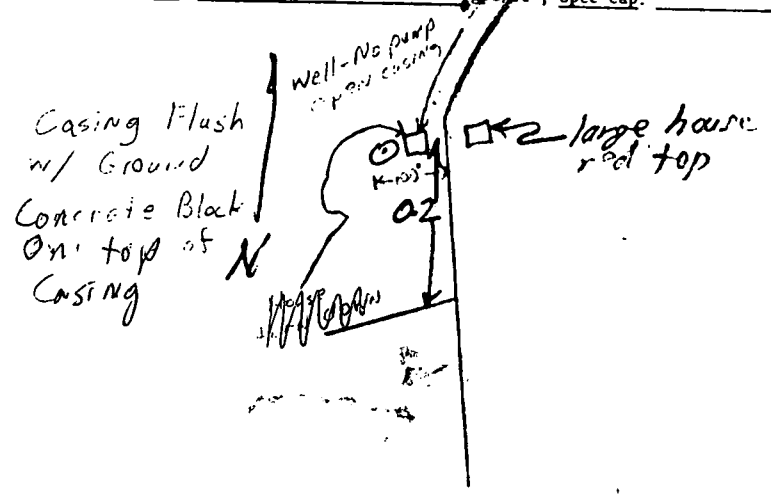 spec cap.
Well-No pump
open casing
Casing Flush
w/ Ground
Concrete Block
On top of
Casing
N
large house
red top
0.2